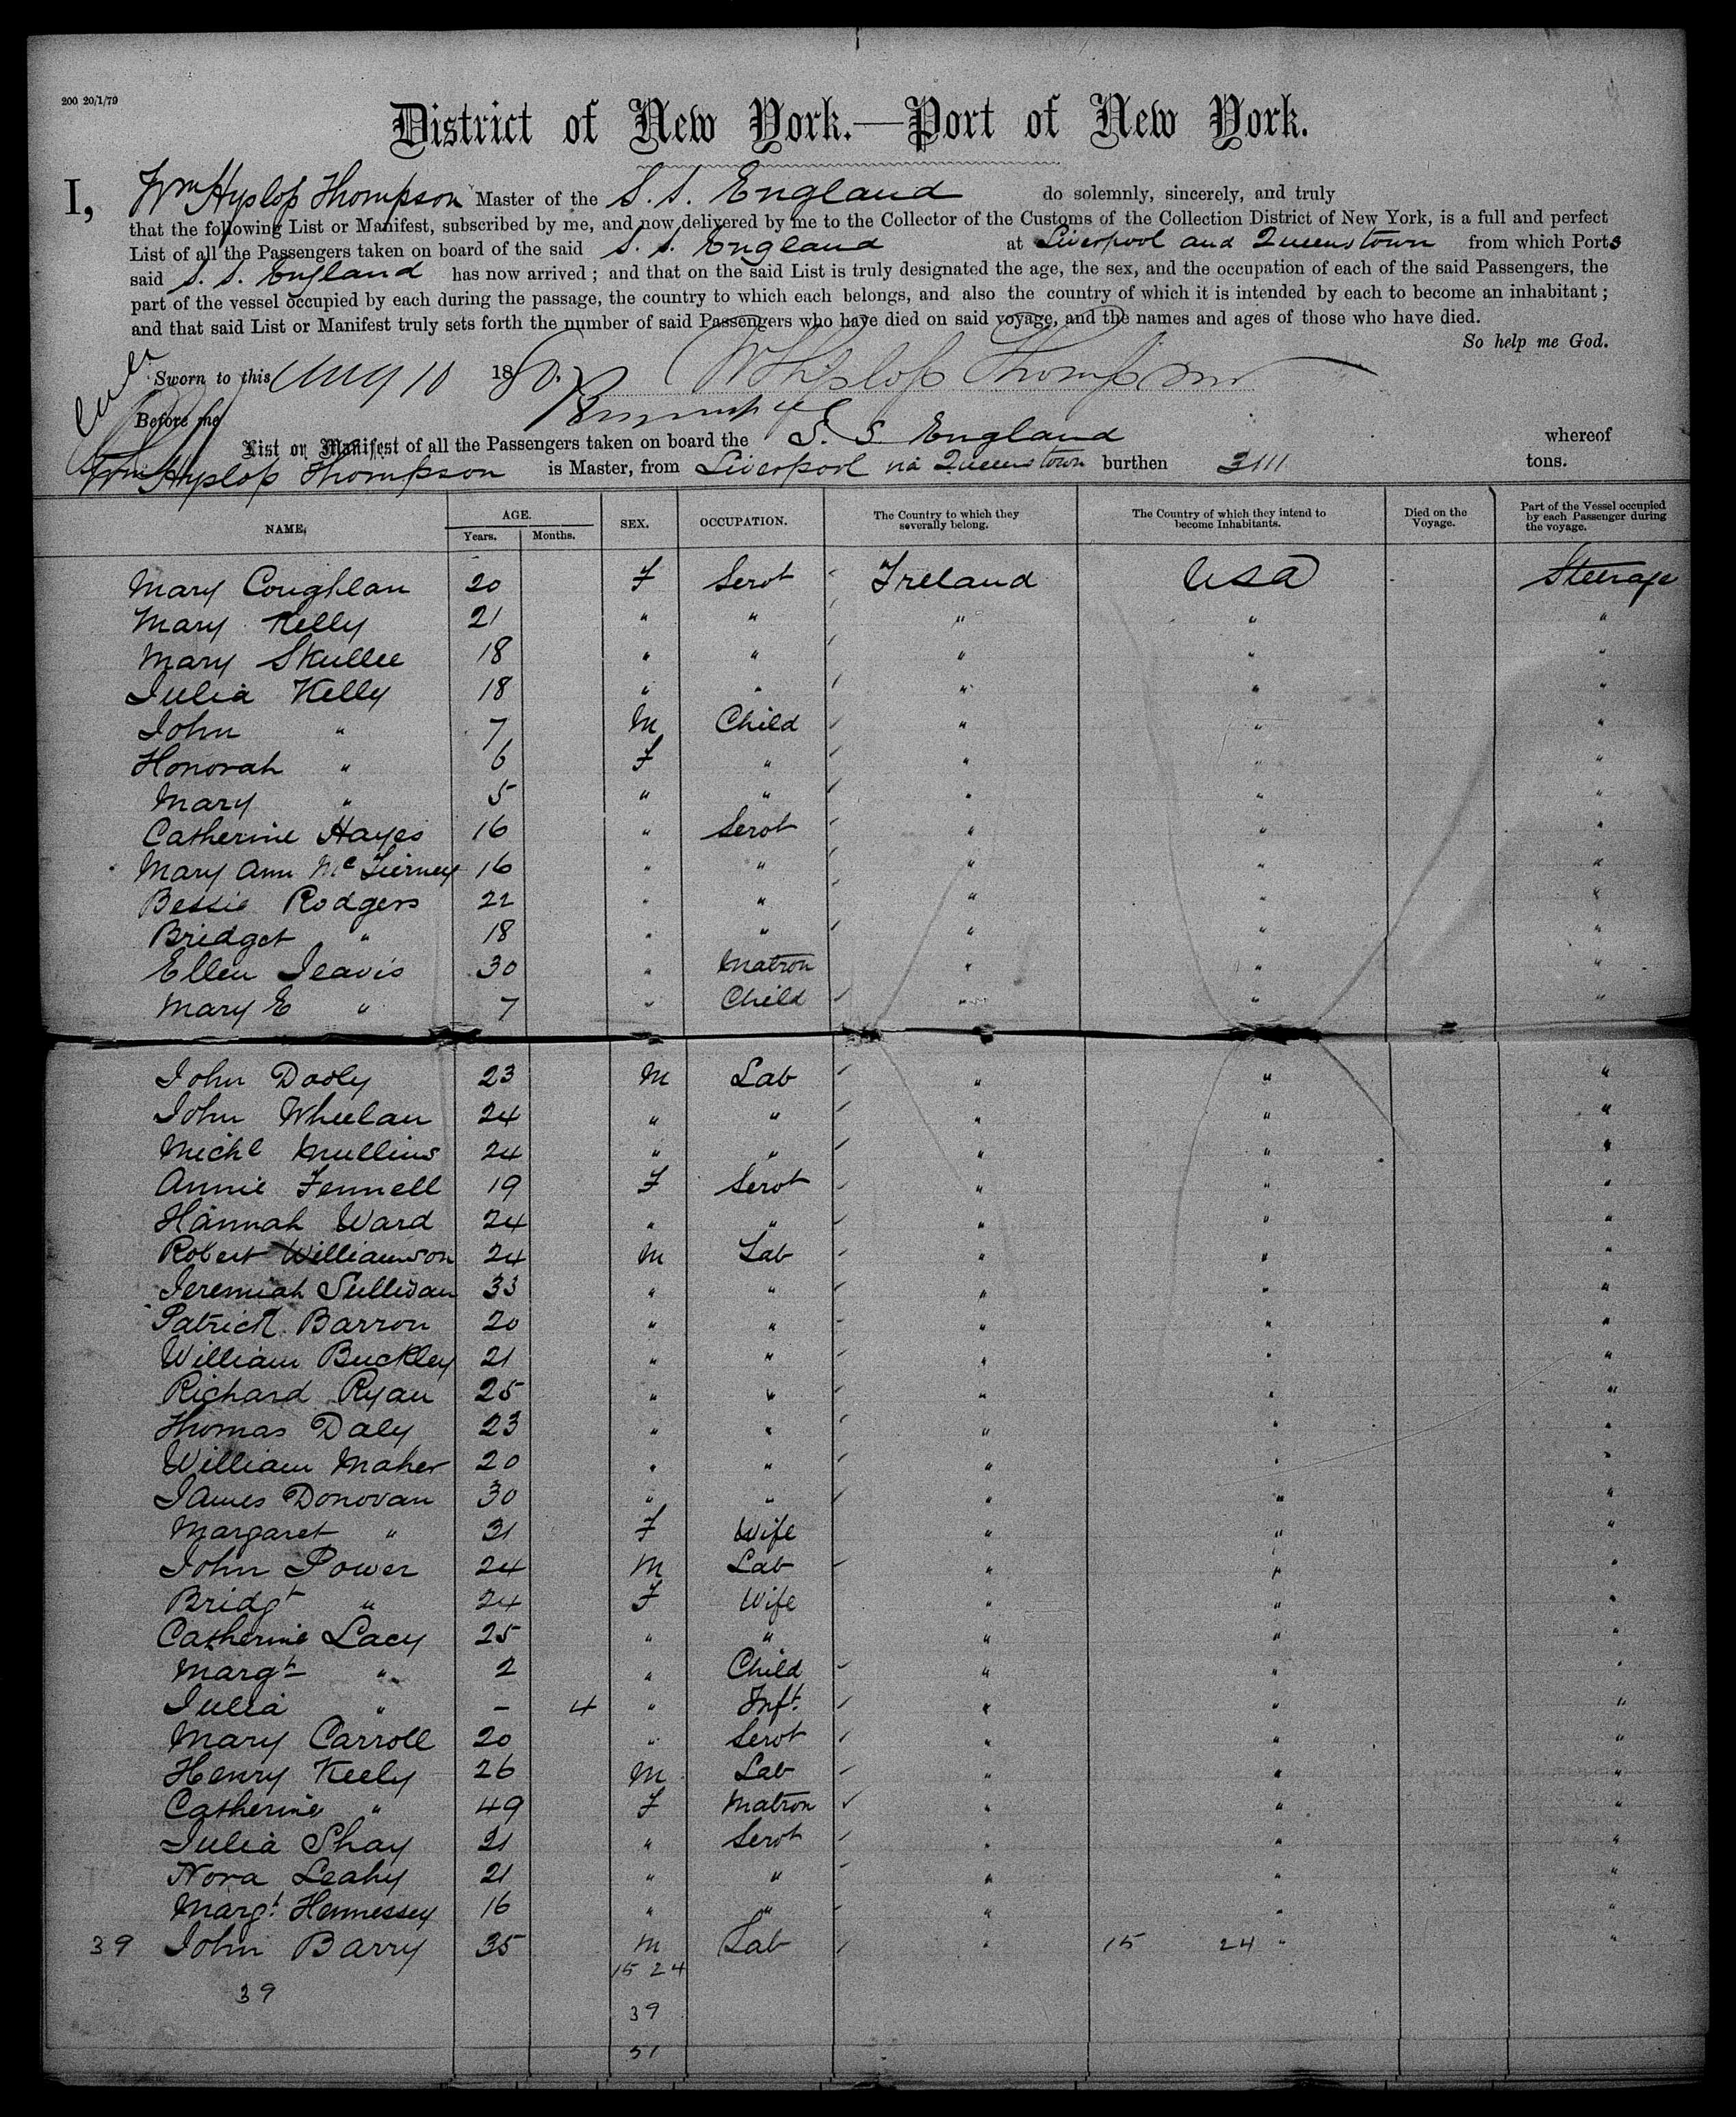 200 20/1/79
District of New York.—Port of New York.
I, Wm Hyslop Thompson Master of the S.S. England do solemnly, sincerely, and truly
that the following List or Manifest, subscribed by me, and now delivered by me to the Collector of the Customs of the Collection District of New York, is a full and perfect
List of all the Passengers taken on board of the said S.S. England at Liverpool and Queenstown from which Ports
said S.S. England has now arrived; and that on the said List is truly designated the age, the sex, and the occupation of each of the said Passengers, the
part of the vessel occupied by each during the passage, the country to which each belongs, and also the country of which it is intended by each to become an inhabitant;
and that said List or Manifest truly sets forth the number of said Passengers who have died on said voyage, and the names and ages of those who have died.
So help me God.
Sworn to this Aug 10 1880. W Hyslop Thompson
Before me
List or Manifest of all the Passengers taken on board the S.S England whereof
Wm Hyslop Thompson is Master, from Liverpool via Queenstown burthen 3111 tons.
NAME. AGE. Years. Months. SEX. OCCUPATION. The Country to which they severally belong. The Country of which they intend to become Inhabitants. Died on the Voyage. Part of the Vessel occupied by each Passenger during the voyage.
Mary Coughlan 20 F Servt Ireland USA Steerage
Mary Kelly 21 " " " " "
Mary Skullee 18 " " " " "
Julia Kelly 18 " " " " "
John " 7 M Child " " "
Honorah " 6 F " " " "
Mary " 5 " " " " "
Catherine Hayes 16 " Servt " " "
Mary Ann McTierney 16 " " " " "
Bessie Rodgers 22 " " " " "
Bridget " 18 " " " " "
Ellen Jeavis 30 " Matron " " "
Mary E " 7 " Child " " "
John Dooly 23 M Lab " " "
John Wheelan 24 " " " " "
Michl Mullins 24 " " " " "
Annie Fennell 19 F Servt " " "
Hannah Ward 24 " " " " "
Robert Williamson 24 M Lab " " "
Jeremiah Sullivan 33 " " " " "
Patrick Barron 20 " " " " "
William Buckley 21 " " " " "
Richard Ryan 25 " " " " "
Thomas Daly 23 " " " " "
William Maher 20 " " " " "
James Donovan 30 " " " " "
Margaret " 31 F Wife " " "
John Power 24 M Lab " " "
Bridgt " 24 F Wife " " "
Catherine Lacy 25 " " " " "
Margt " 2 " Child " " "
Julia " - 4 " Inft. " " "
Mary Carroll 20 " Servt " " "
Henry Keely 26 M Lab " " "
Catherine " 49 F Matron " " "
Julia Shay 21 " Servt " " "
Nora Leahy 21 " " " " "
Margt. Hennessey 16 " " " " "
39 John Barry 35 M Lab " 15 24 " "
15 24
39
39
51